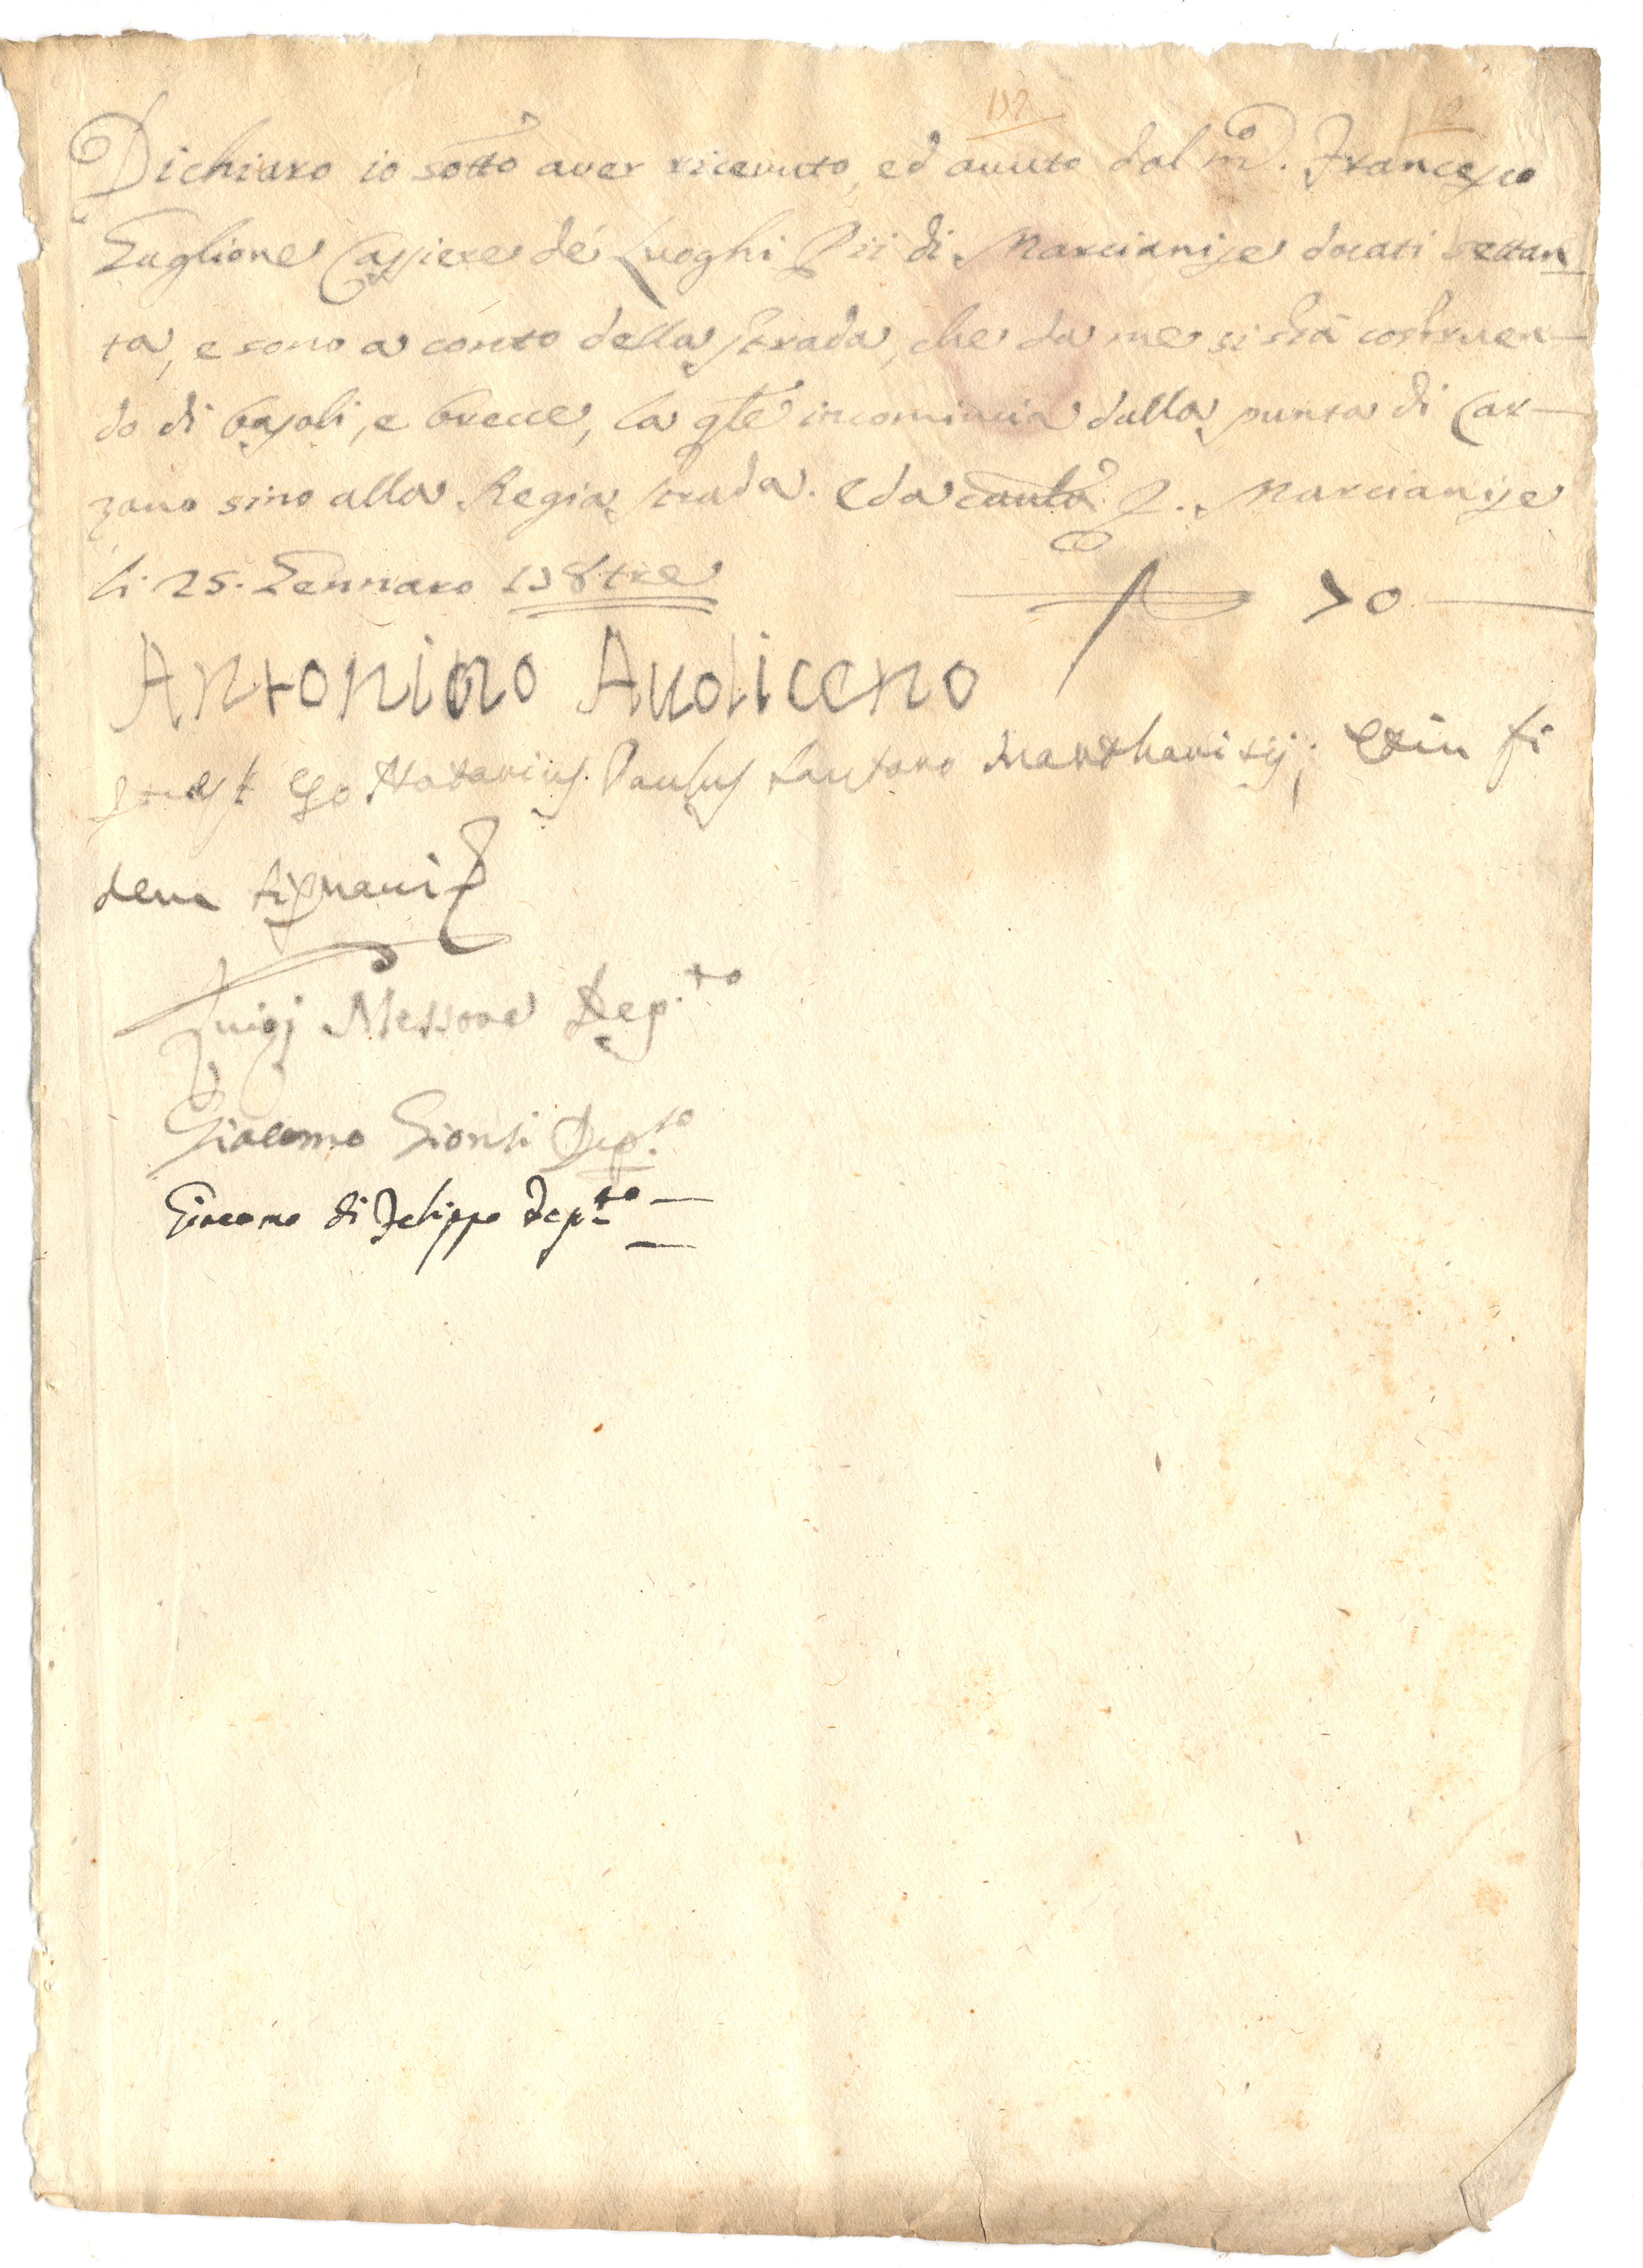 192
12
Dichiaro io sotto aver ricevuto, ed avuto dal m.co Francesco
Guglione Cassiere de' Luoghi Pii di Marcianise docati settan
ta, e sono a conto della strada, che da me si stà costruen-
do di basoli, e brecce, la qle incomincia dalla punta di Car-
zano sino alla Regia strada. e da cautela. Marcianise
li 25. Gennaro 178tre 70
Antonino
Ego Notarius Paulus Marchanisij; et in fi
dem signavi
Luigi Messore Dep.to
Giacomo Gionti Dep.to
Giacomo di Felippo Dep.to